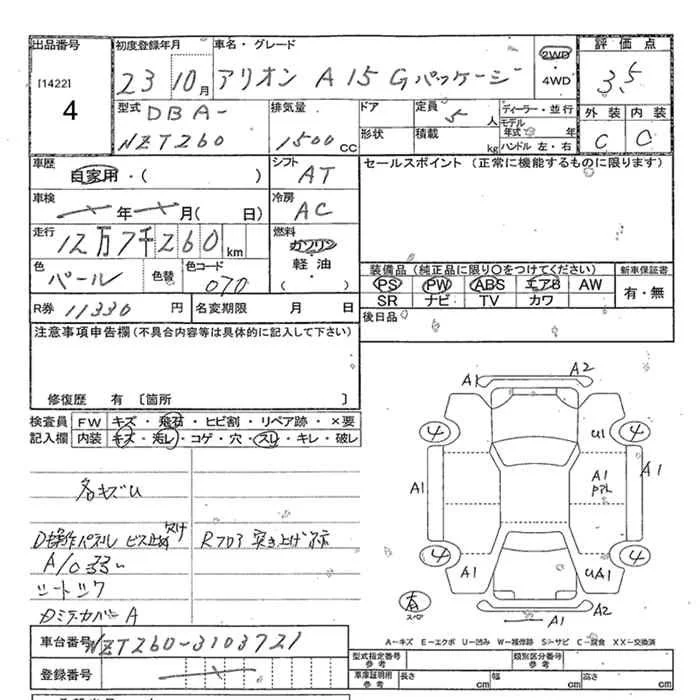 出品番号 初度登録年月 車名・グレード 評価点
[1422] 23 10月 アリオン A15 Gパッケージ 2WD・4WD 3.5
4
型式 DBA-NZT260 排気量 1500cc ドア 定員 5人 ディーラー・並行 外装 内装
形状 積載 kg モデル年式 年 C C
ハンドル 左・右
車歴 自家用・( ) シフト AT セールスポイント (正常に機能するものに限ります)
車検 年 月( 日) 冷房 AC
走行 12万7千260km 燃料 ガソリン・軽油・( )
色 パール 色替 色コード 070 装備品(純正品に限り○をつけてください) 新車保証書
PS PW ABS エアB AW 有・無
SR ナビ TV カワ
R券 11330円 名変期限 月 日 後日品
注意事項申告欄(不具合内容等は具体的に記入して下さい)
修復歴 有 〔箇所 〕
検査員記入欄 FW キズ・飛石・ヒビ割・リペア跡・×要
内装 キズ・汚レ・コゲ・穴・スレ・キレ・破レ
各キズU
D操作パネル ビス止め 欠け
R フロア 突き上げ
A/C弱い
シート
カバーA
A1 A2
4 U1 4
A1 A1 A1
4 4
A1 UA1
有 スペア
A1 A2
A-キズ E-エクボ U-凹み W-補修跡 S-サビ C-腐食 XX-交換済
車台番号 NZT260-3103721 型式指定番号 参考 類別区分番号 参考
登録番号 車庫証明用 参考 長さ cm 幅 cm 高さ cm